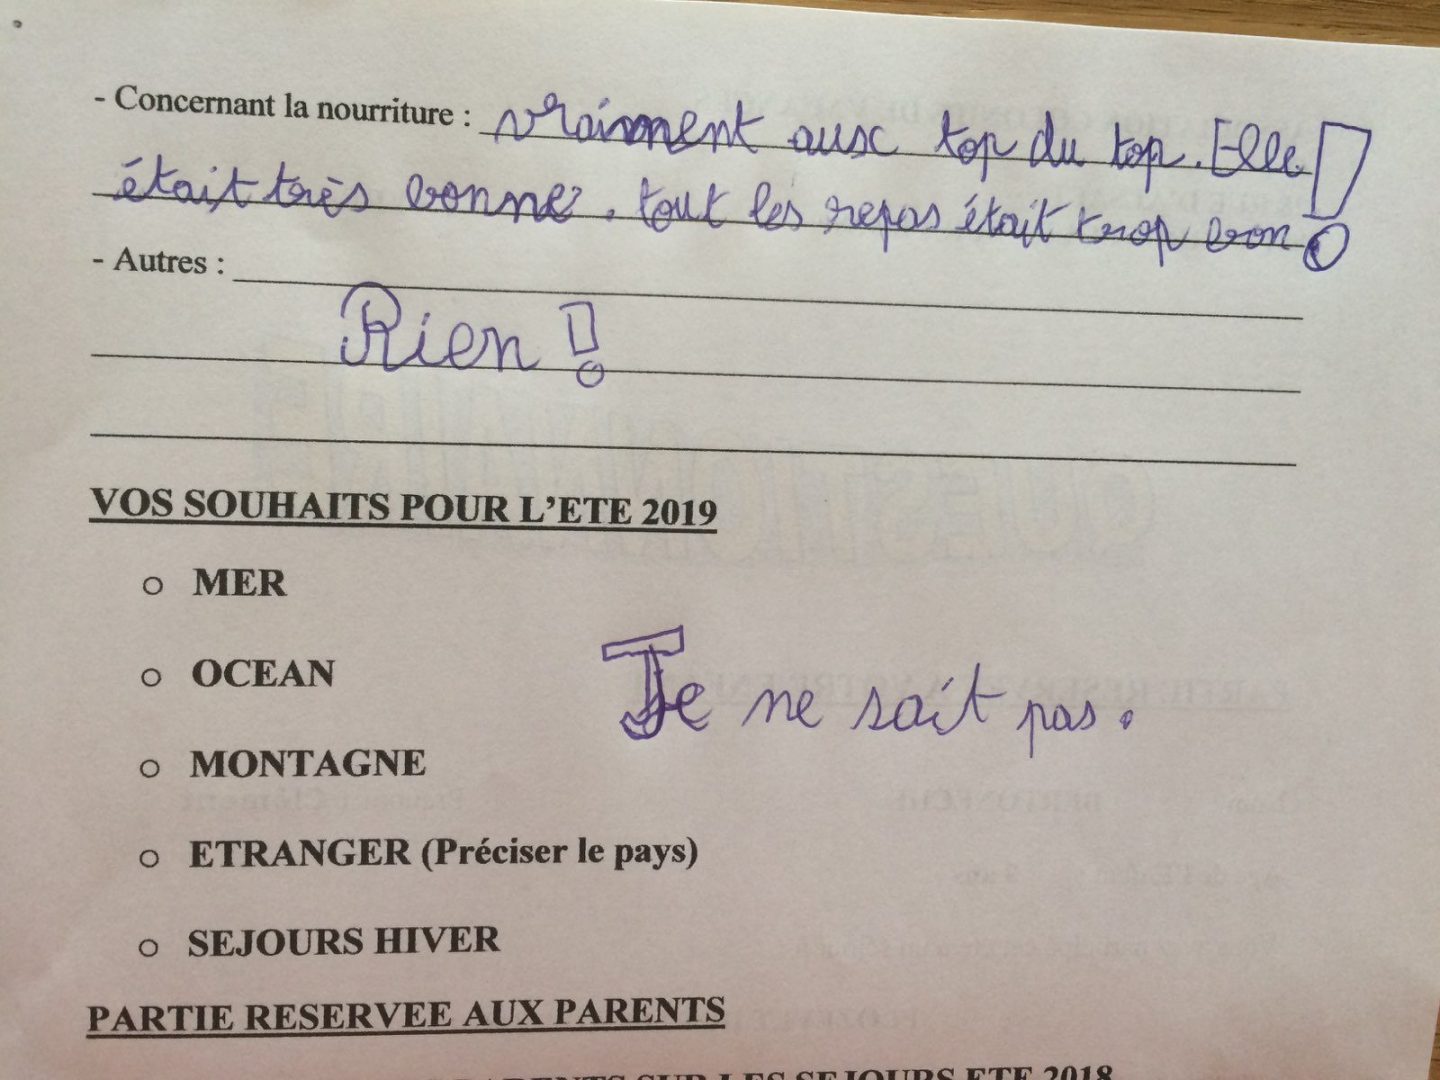 - Concernant la nourriture : vraiment aux top du top. Elle
était très bonne. tout les repas était trop bon !
- Autres :
Rien !
VOS SOUHAITS POUR L'ETE 2019
o MER
o OCEAN
Je ne sait pas.
o MONTAGNE
o ETRANGER (Préciser le pays)
o SEJOURS HIVER
PARTIE RESERVEE AUX PARENTS
PARENTS SUR LES SEJOURS ETE 2018